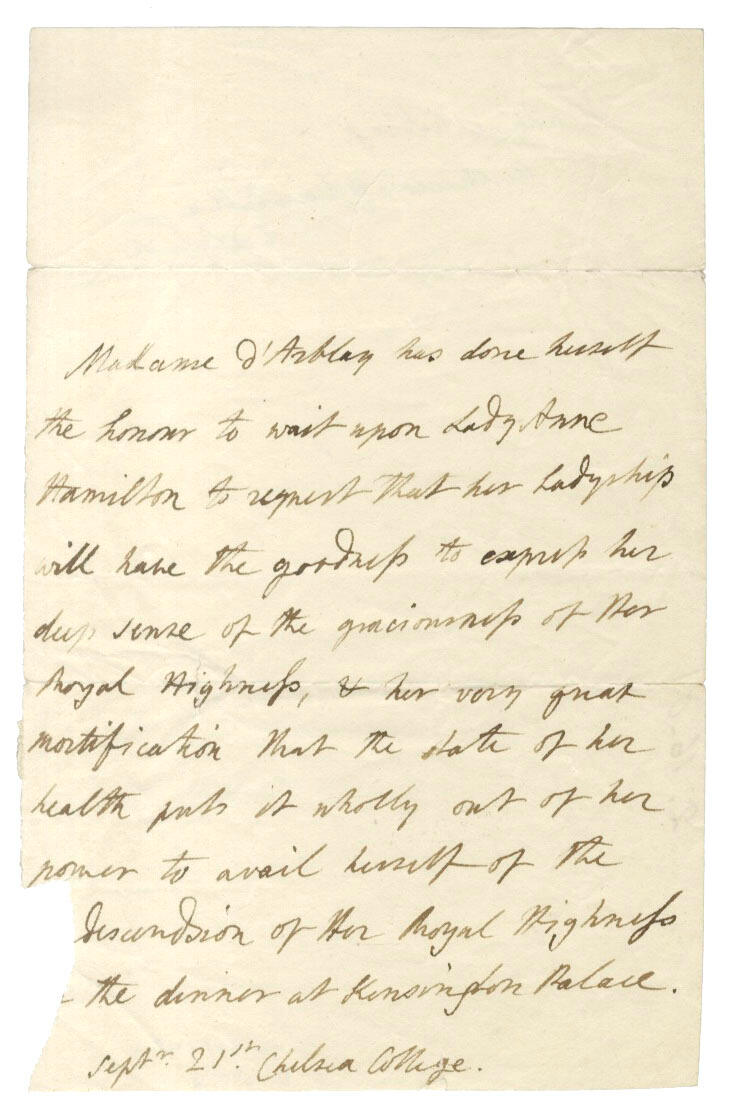 Madame d'Arblay has done herself
the honour to wait upon Lady Anne
Hamilton to request that her Ladyship
will have the goodness to express her
deep sense of the graciousness of Her
Royal Highness, & her very great
mortification that the state of her
health puts it wholly out of her
power to avail herself of the
descendsion of Her Royal Highness
the dinner at Kensington Palace.
Septr. 21st. Chelsea College.